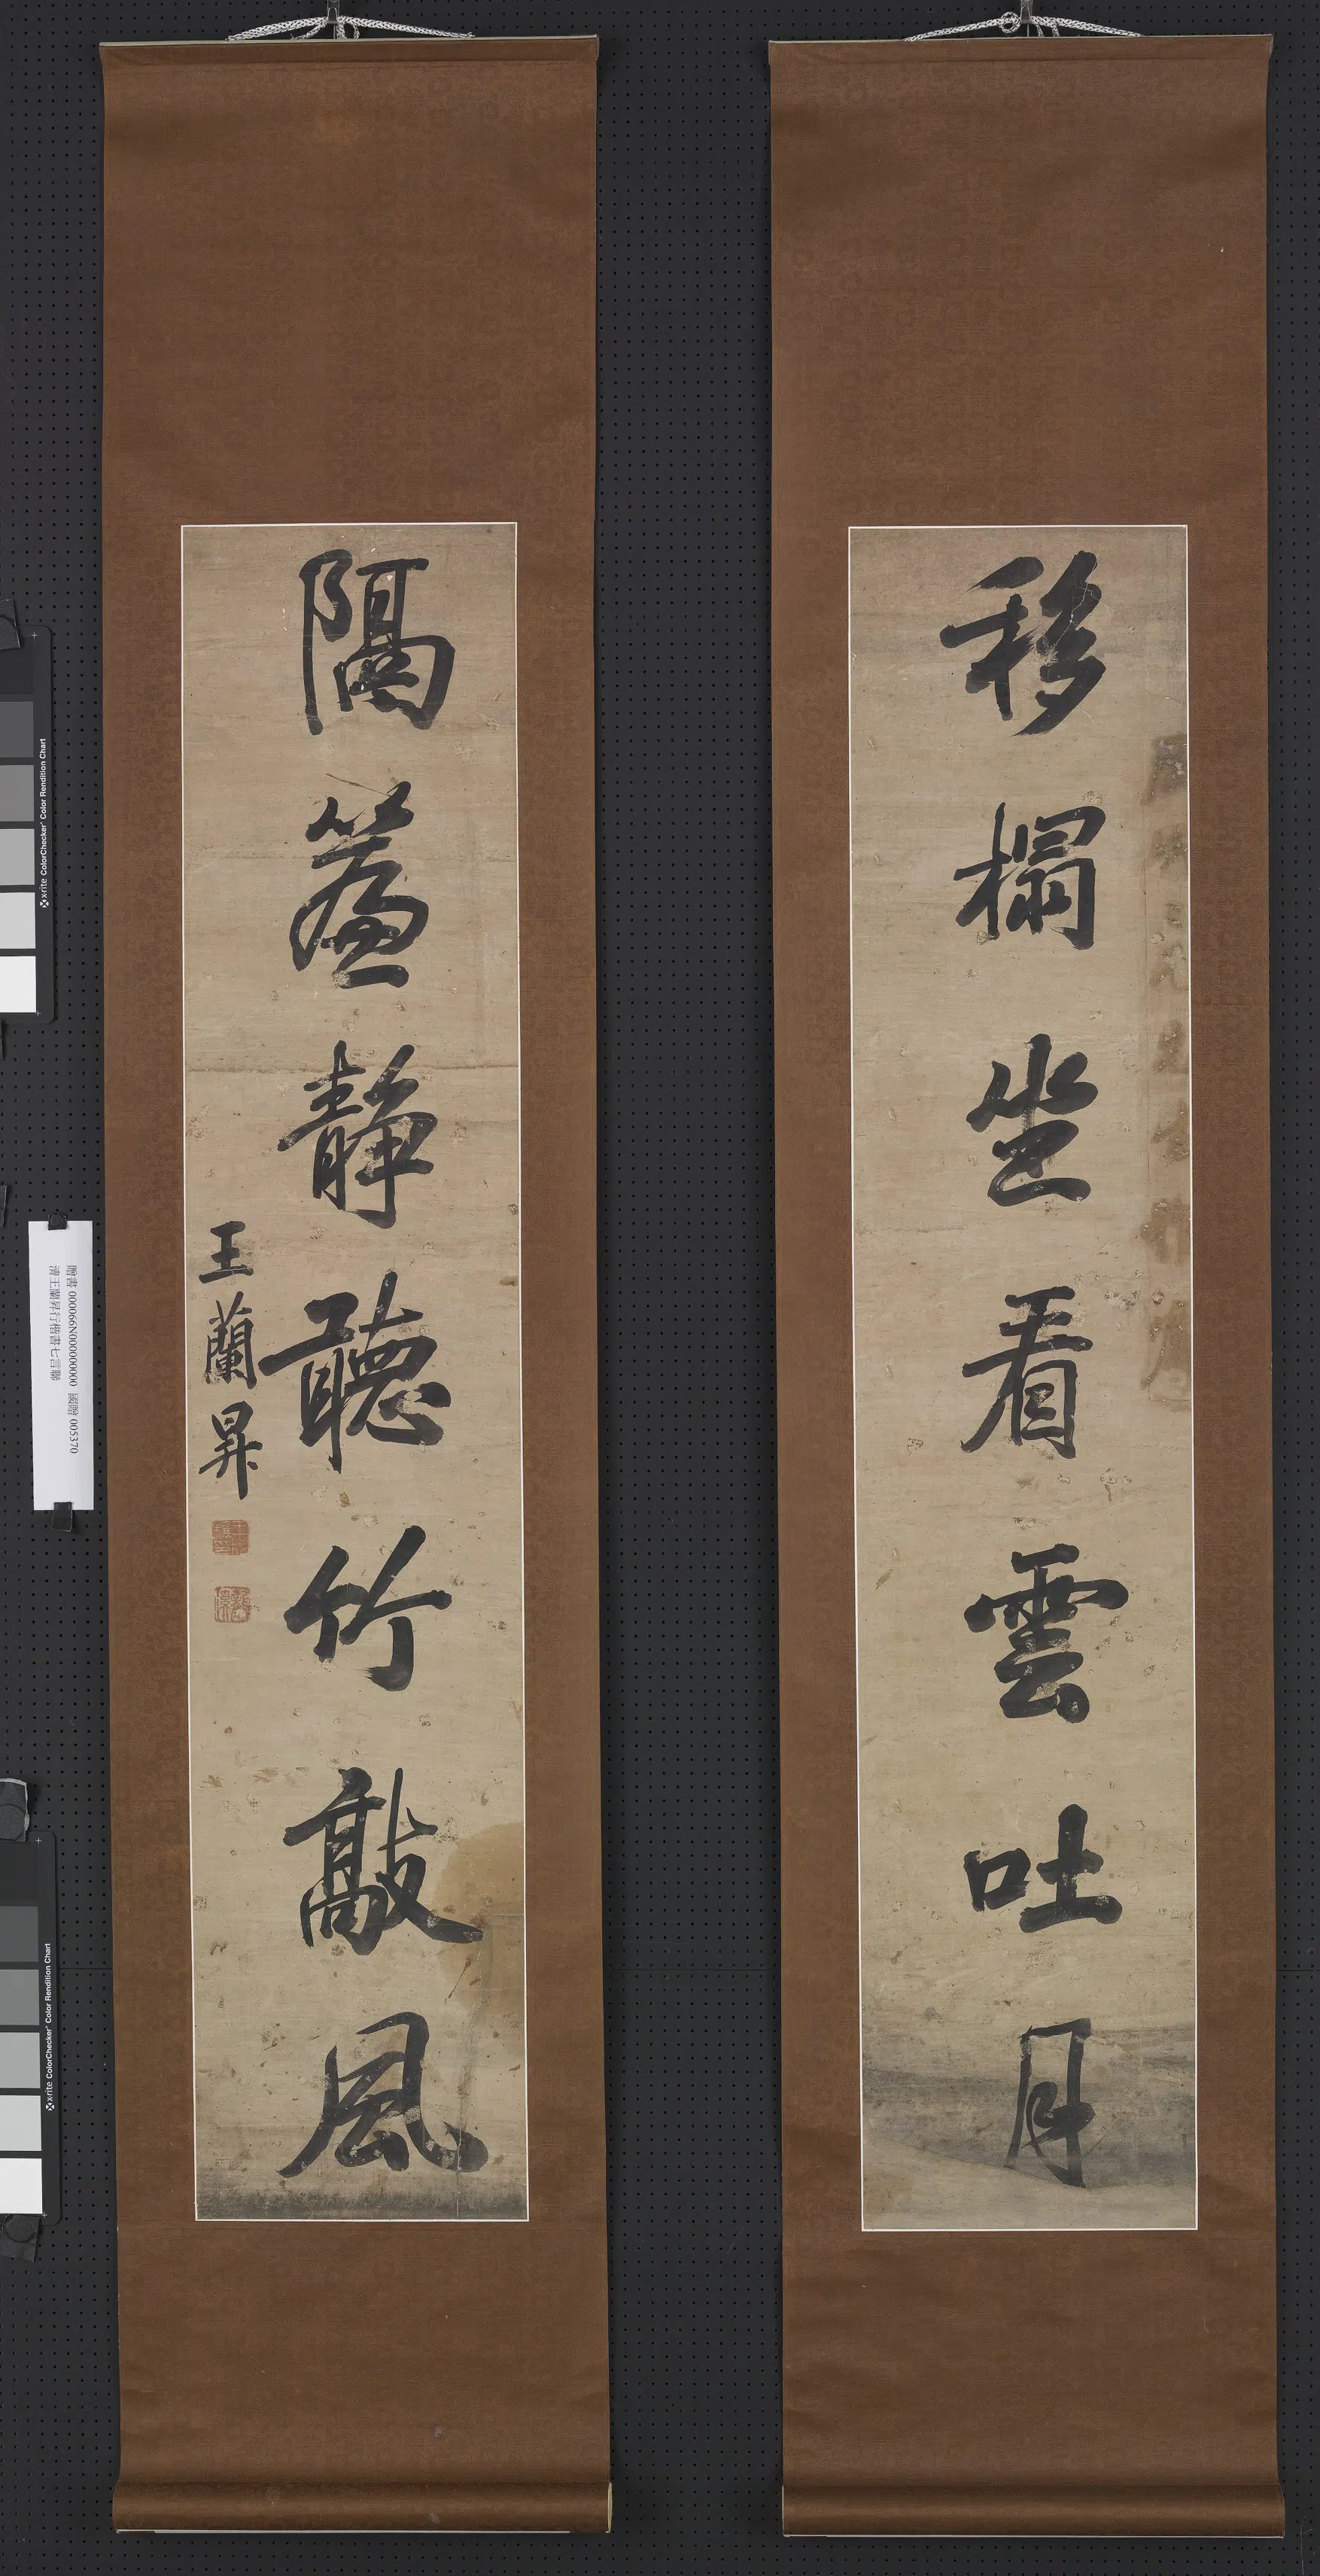 移榻坐看雲吐月
隔簾靜聽竹敲風
王蘭昇
贈書 000066N000000000 國贈 005370
清王蘭昇行楷書七言聯
x-rite ColorChecker Color Rendition Chart
x-rite ColorChecker Color Rendition Chart